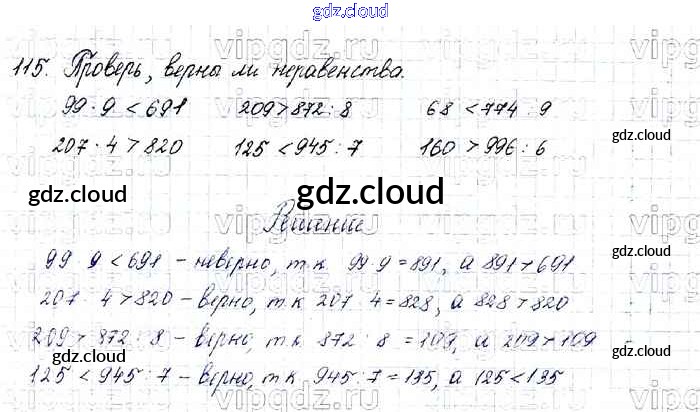 gdz.cloud
115. Проверь, верны ли неравенства.
99 · 9 < 691 209 > 872 : 8 68 < 774 : 9
207 · 4 > 820 125 < 945 : 7 160 > 996 : 6
gdz.cloud
gdz.cloud gdz.cloud gdz.cloud
Решение
99 9 < 691 – неверно, т к 99 9 = 891, а 891 > 691
207 · 4 > 820 – верно, т к 207 4 = 828, а 828 > 820
209 > 872 : 8 – верно, т к 872 : 8 = 109, а 209 > 109
gdz.cloud gdz.cloud
125 < 945 : 7 – верно, т к 945 : 7 = 135, а 125 < 135